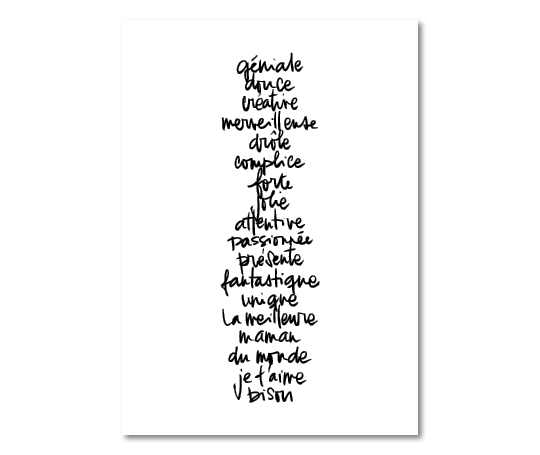 géniale
douce
créative
merveilleuse
drôle
complice
forte
jolie
attentive
passionnée
présente
fantastique
unique
La meilleure
maman
du monde
je t'aime
bison